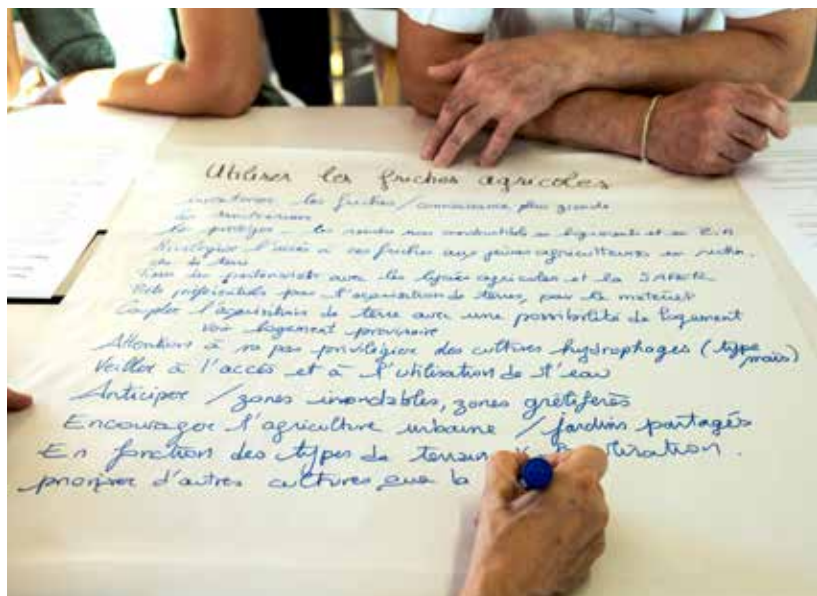 Utiliser les friches agricoles
inventorier les friches / connaissance plus grande
du territoire
Les protéger - les rendre non constructibles en logement et en Z.A
Privilégier l'accès à ces friches aux jeunes agriculteurs en recher
che de terre
les partenariats avec les lycées agricoles et la SAFER
Prêts préférentiels pour l'acquisition de terres, pour le matériel
Coupler l'acquisition de terre avec une possibilité de logement
voir logement provisoire
Attention à ne pas privilégier des cultures hydrophages (type maïs)
Veiller à l'accès et à l'utilisation de l'eau
Anticiper / zones inondables, zones grêlifères
Encourager l'agriculture urbaine / jardins partagés
En fonction des types de terrain
proposer d'autres cultures que la